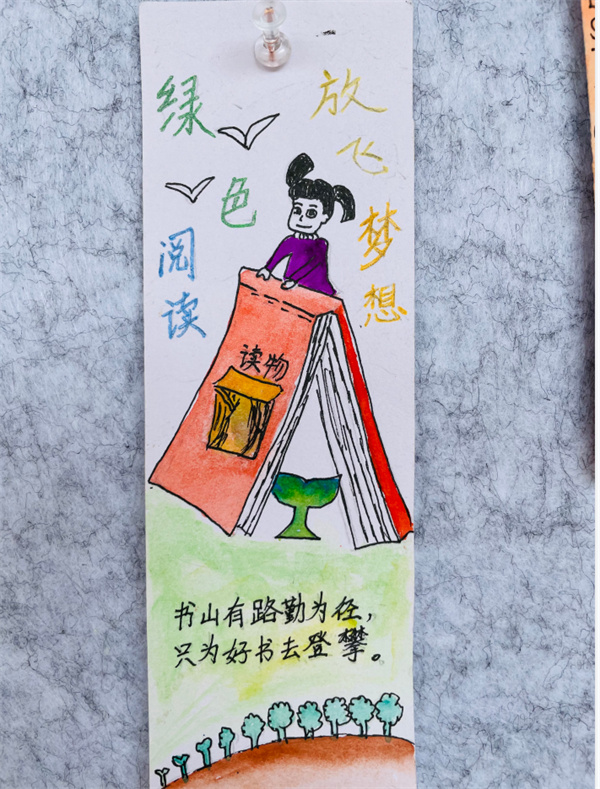 绿色
阅读
放飞
梦想
读物
书山有路勤为径，
只为好书去登攀。